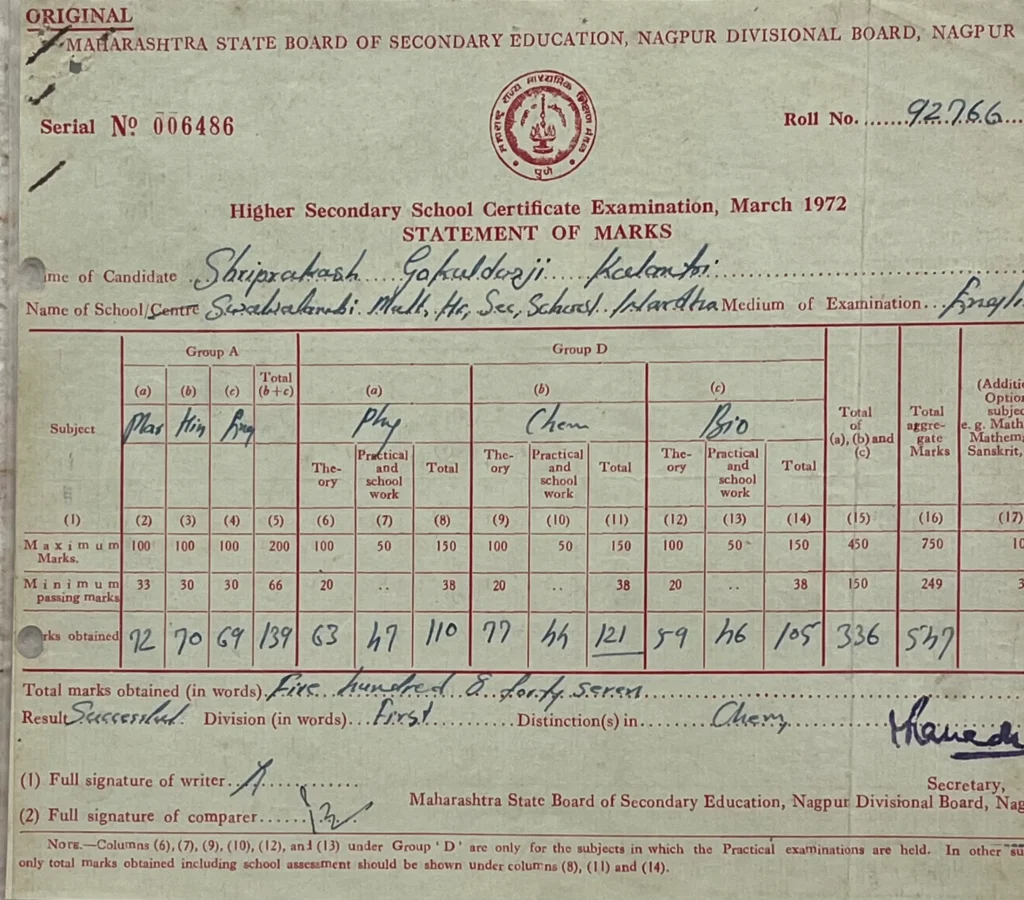 ORIGINAL
MAHARASHTRA STATE BOARD OF SECONDARY EDUCATION, NAGPUR DIVISIONAL BOARD, NAGPUR
महाराष्ट्र राज्य माध्यमिक शिक्षण मंडळ
पुणे
Serial No 006486
Roll No. 92766
Higher Secondary School Certificate Examination, March 1972
STATEMENT OF MARKS
me of Candidate Shriprakash Gokuldasji Kalantri
Name of School/Centre Swalwalambi Mult, Hr, Sec, School Wardha Medium of Examination Engli
Group A Group D
(a) (b) (c) Total (b+c) (a) (b) (c)
Subject Mar Hin Eng Phy Chem Bio Total of (a), (b) and (c) Total aggre-gate Marks (Additi Option subjec e. g. Math Mathema Sanskrit,
The-ory Practical and school work Total The-ory Practical and school work Total The-ory Practical and school work Total
(1) (2) (3) (4) (5) (6) (7) (8) (9) (10) (11) (12) (13) (14) (15) (16) (17)
Maximum Marks. 100 100 100 200 100 50 150 100 50 150 100 50 150 450 750 10
Minimum passing marks 33 30 30 66 20 .. 38 20 .. 38 20 .. 38 150 249 3
rks obtained 72 70 69 139 63 47 110 77 44 121 59 46 105 336 547
Total marks obtained (in words) Five hundred & forty seven
Result Successful Division (in words) First Distinction(s) in Chem
(1) Full signature of writer
Secretary,
(2) Full signature of comparer
Maharashtra State Board of Secondary Education, Nagpur Divisional Board, Nag
NOTE.—Columns (6), (7), (9), (10), (12), and (13) under Group 'D' are only for the subjects in which the Practical examinations are held. In other su
only total marks obtained including school assessment should be shown under columns (8), (11) and (14).